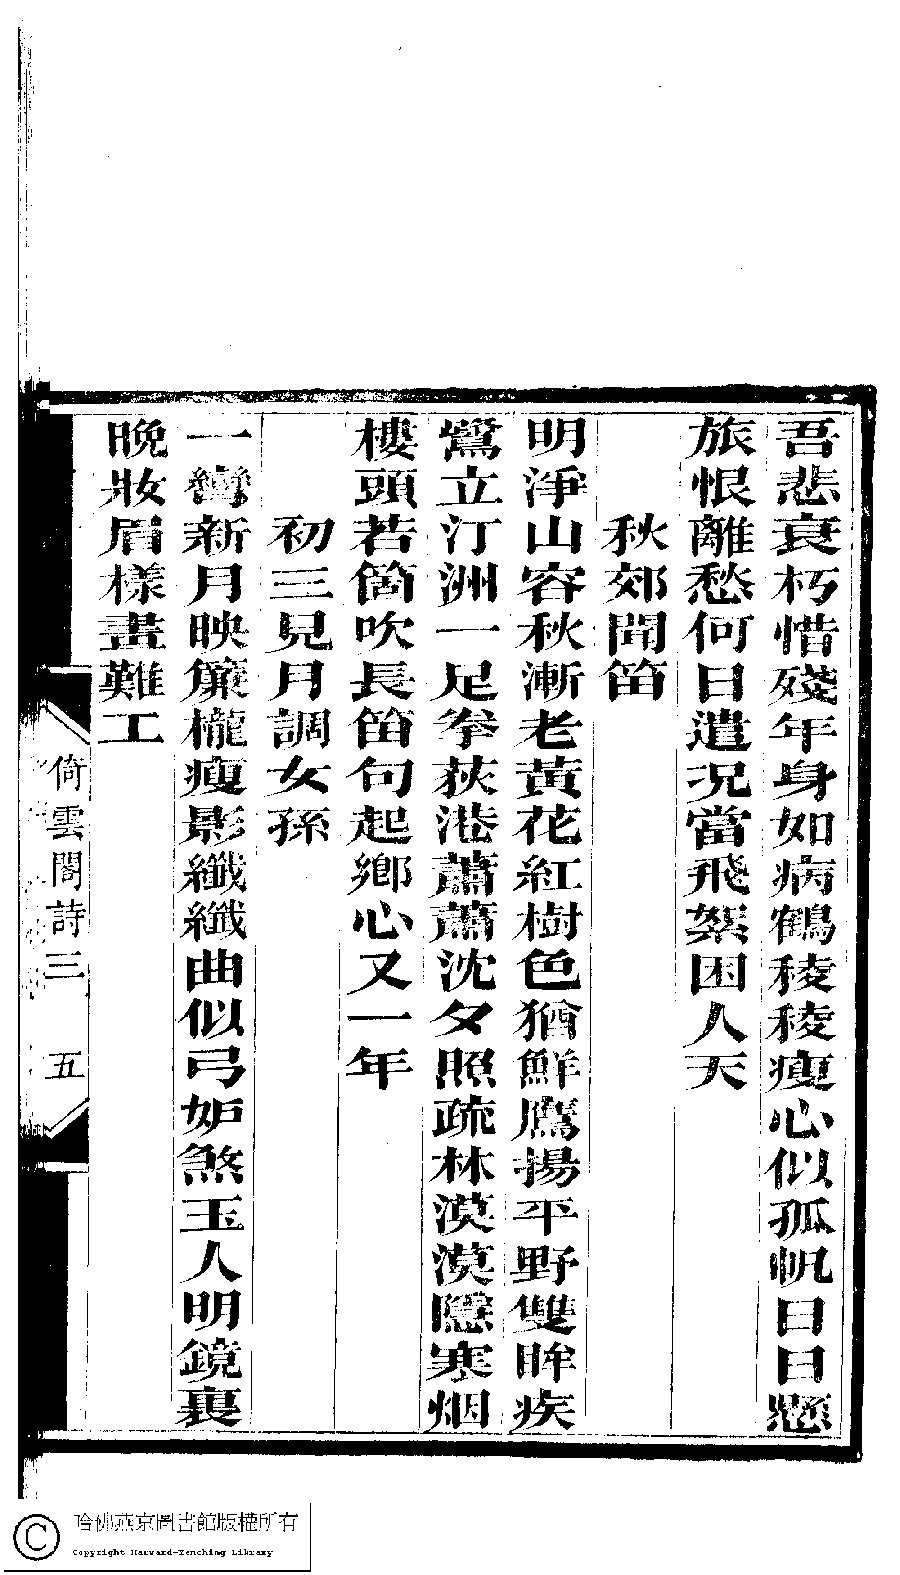 吾悲衰朽惜殘年身如病鶴稜稜瘦心似孤帆日日懸
旅恨離愁何日遣况當飛絮困人天
秋郊聞笛
明淨山容秋漸老黃花紅樹色猶鮮鷹揚平野雙眸疾
鷺立汀洲一足拳荻港蕭蕭沈夕照疏林漠漠隱寒烟
樓頭若箇吹長笛句起鄉心又一年
初三見月調女孫
一彎新月映簾櫳瘦影纖纖曲似弓妒煞玉人明鏡裏
晚妝眉樣畫難工
倚雲閣詩三 五
哈佛燕京圖書館版權所有
Copyright Harvard-Yenching Library